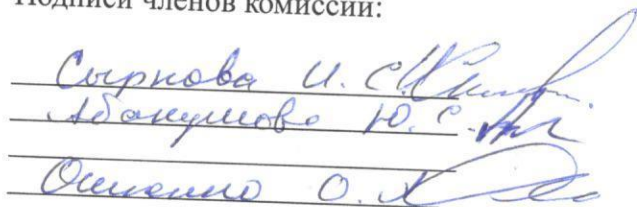 Подписи членов комиссии:
Сыркова И. С.
Абакумова Ю. С.
О.